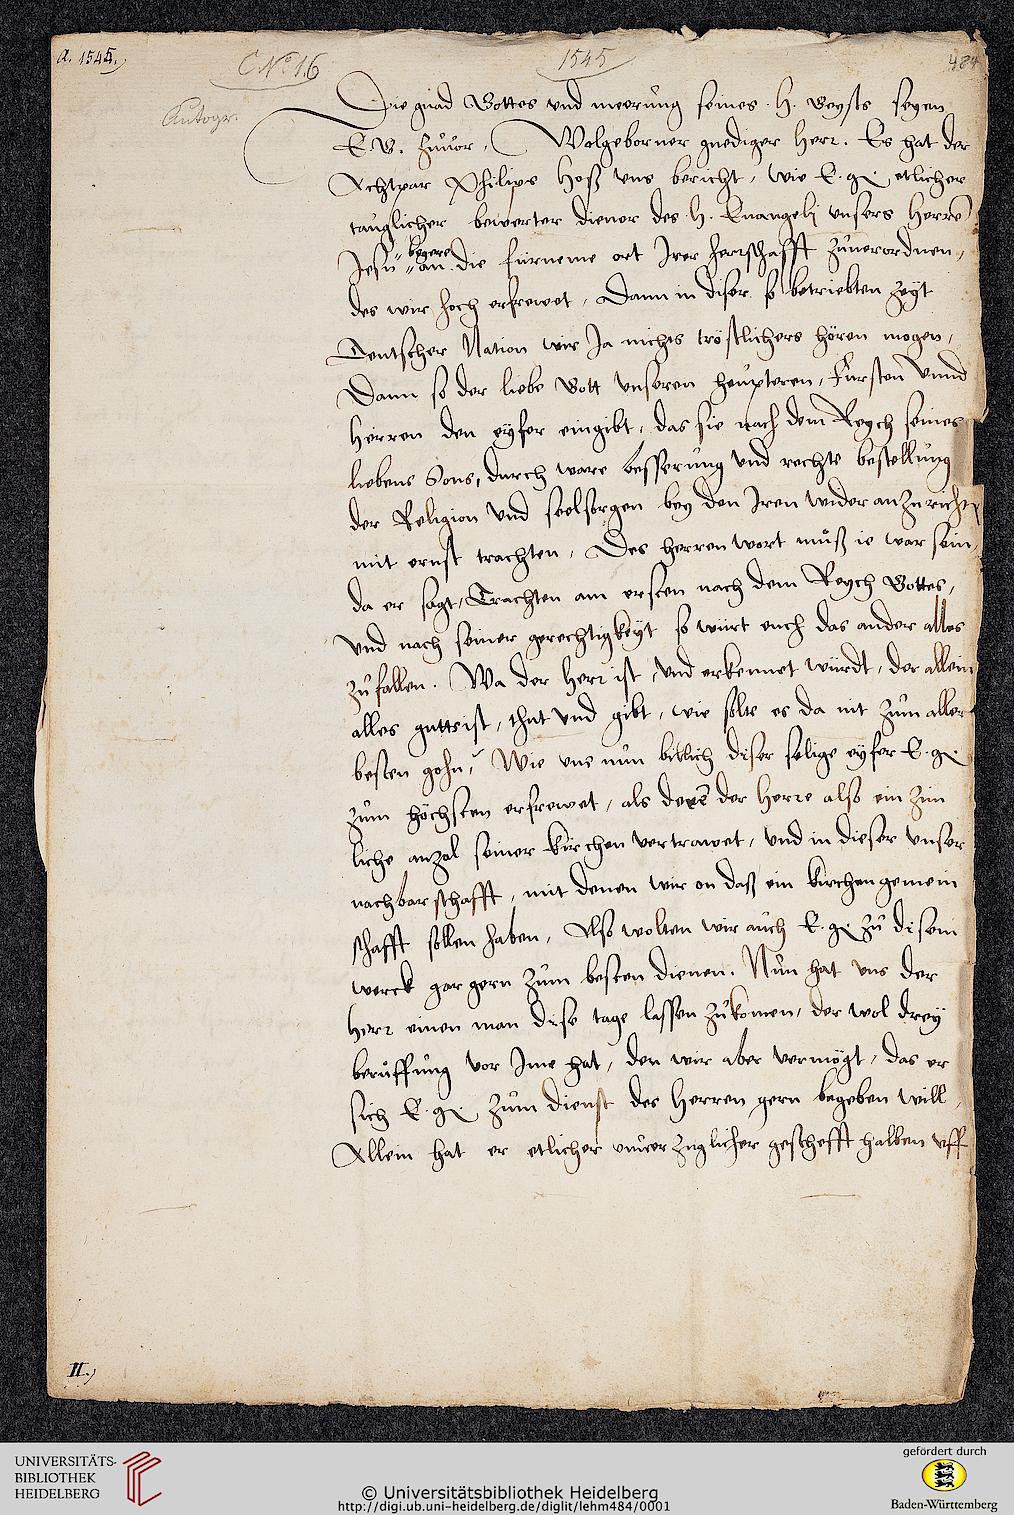 a. 1545.
C No 16
1545
484
Autogr.
Die gnad Gottes vnd meerung seines H. Geysts seyen
E. G. zuuor. Wolgeborner gnediger Herr. Es hat der
Achtpar Philips Hoß vns bericht, wie E. g. etlicher
tauglicher bewerter diener des H. Euangelj vnsers Herre
begere
Jesu an die furneme ort Irer herrschafft zuuerordnen,
des wir hoch erfrewet, Dann in diser so betriebten zeyt
Teutscher Nation wir Ja nichts tröstlichers hören mogen,
Dann so der liebe Gott vnseren heupteren, Fursten vnnd
Herren den eyfer eingibt, das sie nach dem Reych seines
liebens Sons, durch ware besserung vnd rechte bestellung
der Religion vnd seelsorgen bey den Iren wider anzurichten
mit ernst trachten, Des herren wort muß ie war sein,
da er sagt, Trachten am ersten nach dem Reych Gottes,
vnd nach seiner gerechtigkeyt so würt euch das ander alles
zufallen. Wa der Herr ist, vnd erkennet würdt, der allein
alles guts ist, thut vnd gibt, wie solte es da nit zum aller
besten gohn? Wie vns nun bitlich diser selige eyfer E. g.
zum höchsten erfrewet, als deren der Herre also ein zim
liche anzal seiner kirchen vertrawet, vnd in dieser vnser
nachbarschafft, mit denen wir on daß ein kirchen gemein
schafft sollen haben, Also wolten wir auch E. g. zu disem
werck gar gern zum besten dienen. Nun hat vns der
Herr einen man dise tage lassen zukomen, der wol drey
beruffung vor Ime hat, den wir aber vermögt, das er
sich E. g. zum dienst des Herren gern begeben will,
Allein hat er etlicher vnuerzuglicher gescheft halben vff
II.
UNIVERSITÄTS-
BIBLIOTHEK
HEIDELBERG
© Universitätsbibliothek Heidelberg
http://digi.ub.uni-heidelberg.de/diglit/lehm484/0001
gefördert durch
Baden-Württemberg